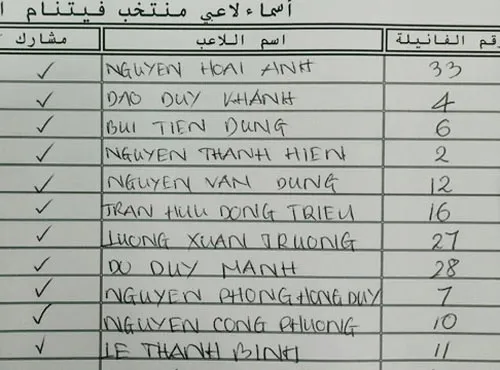 أسماء لاعبي منتخب فيتنام
رقم الفانيلة اسم اللاعب مشارك
✓ NGUYEN HOAI ANH 33
✓ DAO DUY KHANH 4
✓ BUI TIEN DUNG 6
✓ NGUYEN THANH HIEN 2
✓ NGUYEN VAN DUNG 12
✓ TRAN HUU DONG TRIEU 16
✓ LUONG XUAN TRUONG 27
✓ DO DUY MANH 28
✓ NGUYEN PHONG HONG DUY 7
✓ NGUYEN CONG PHUONG 10
✓ LE THANH BINH 11